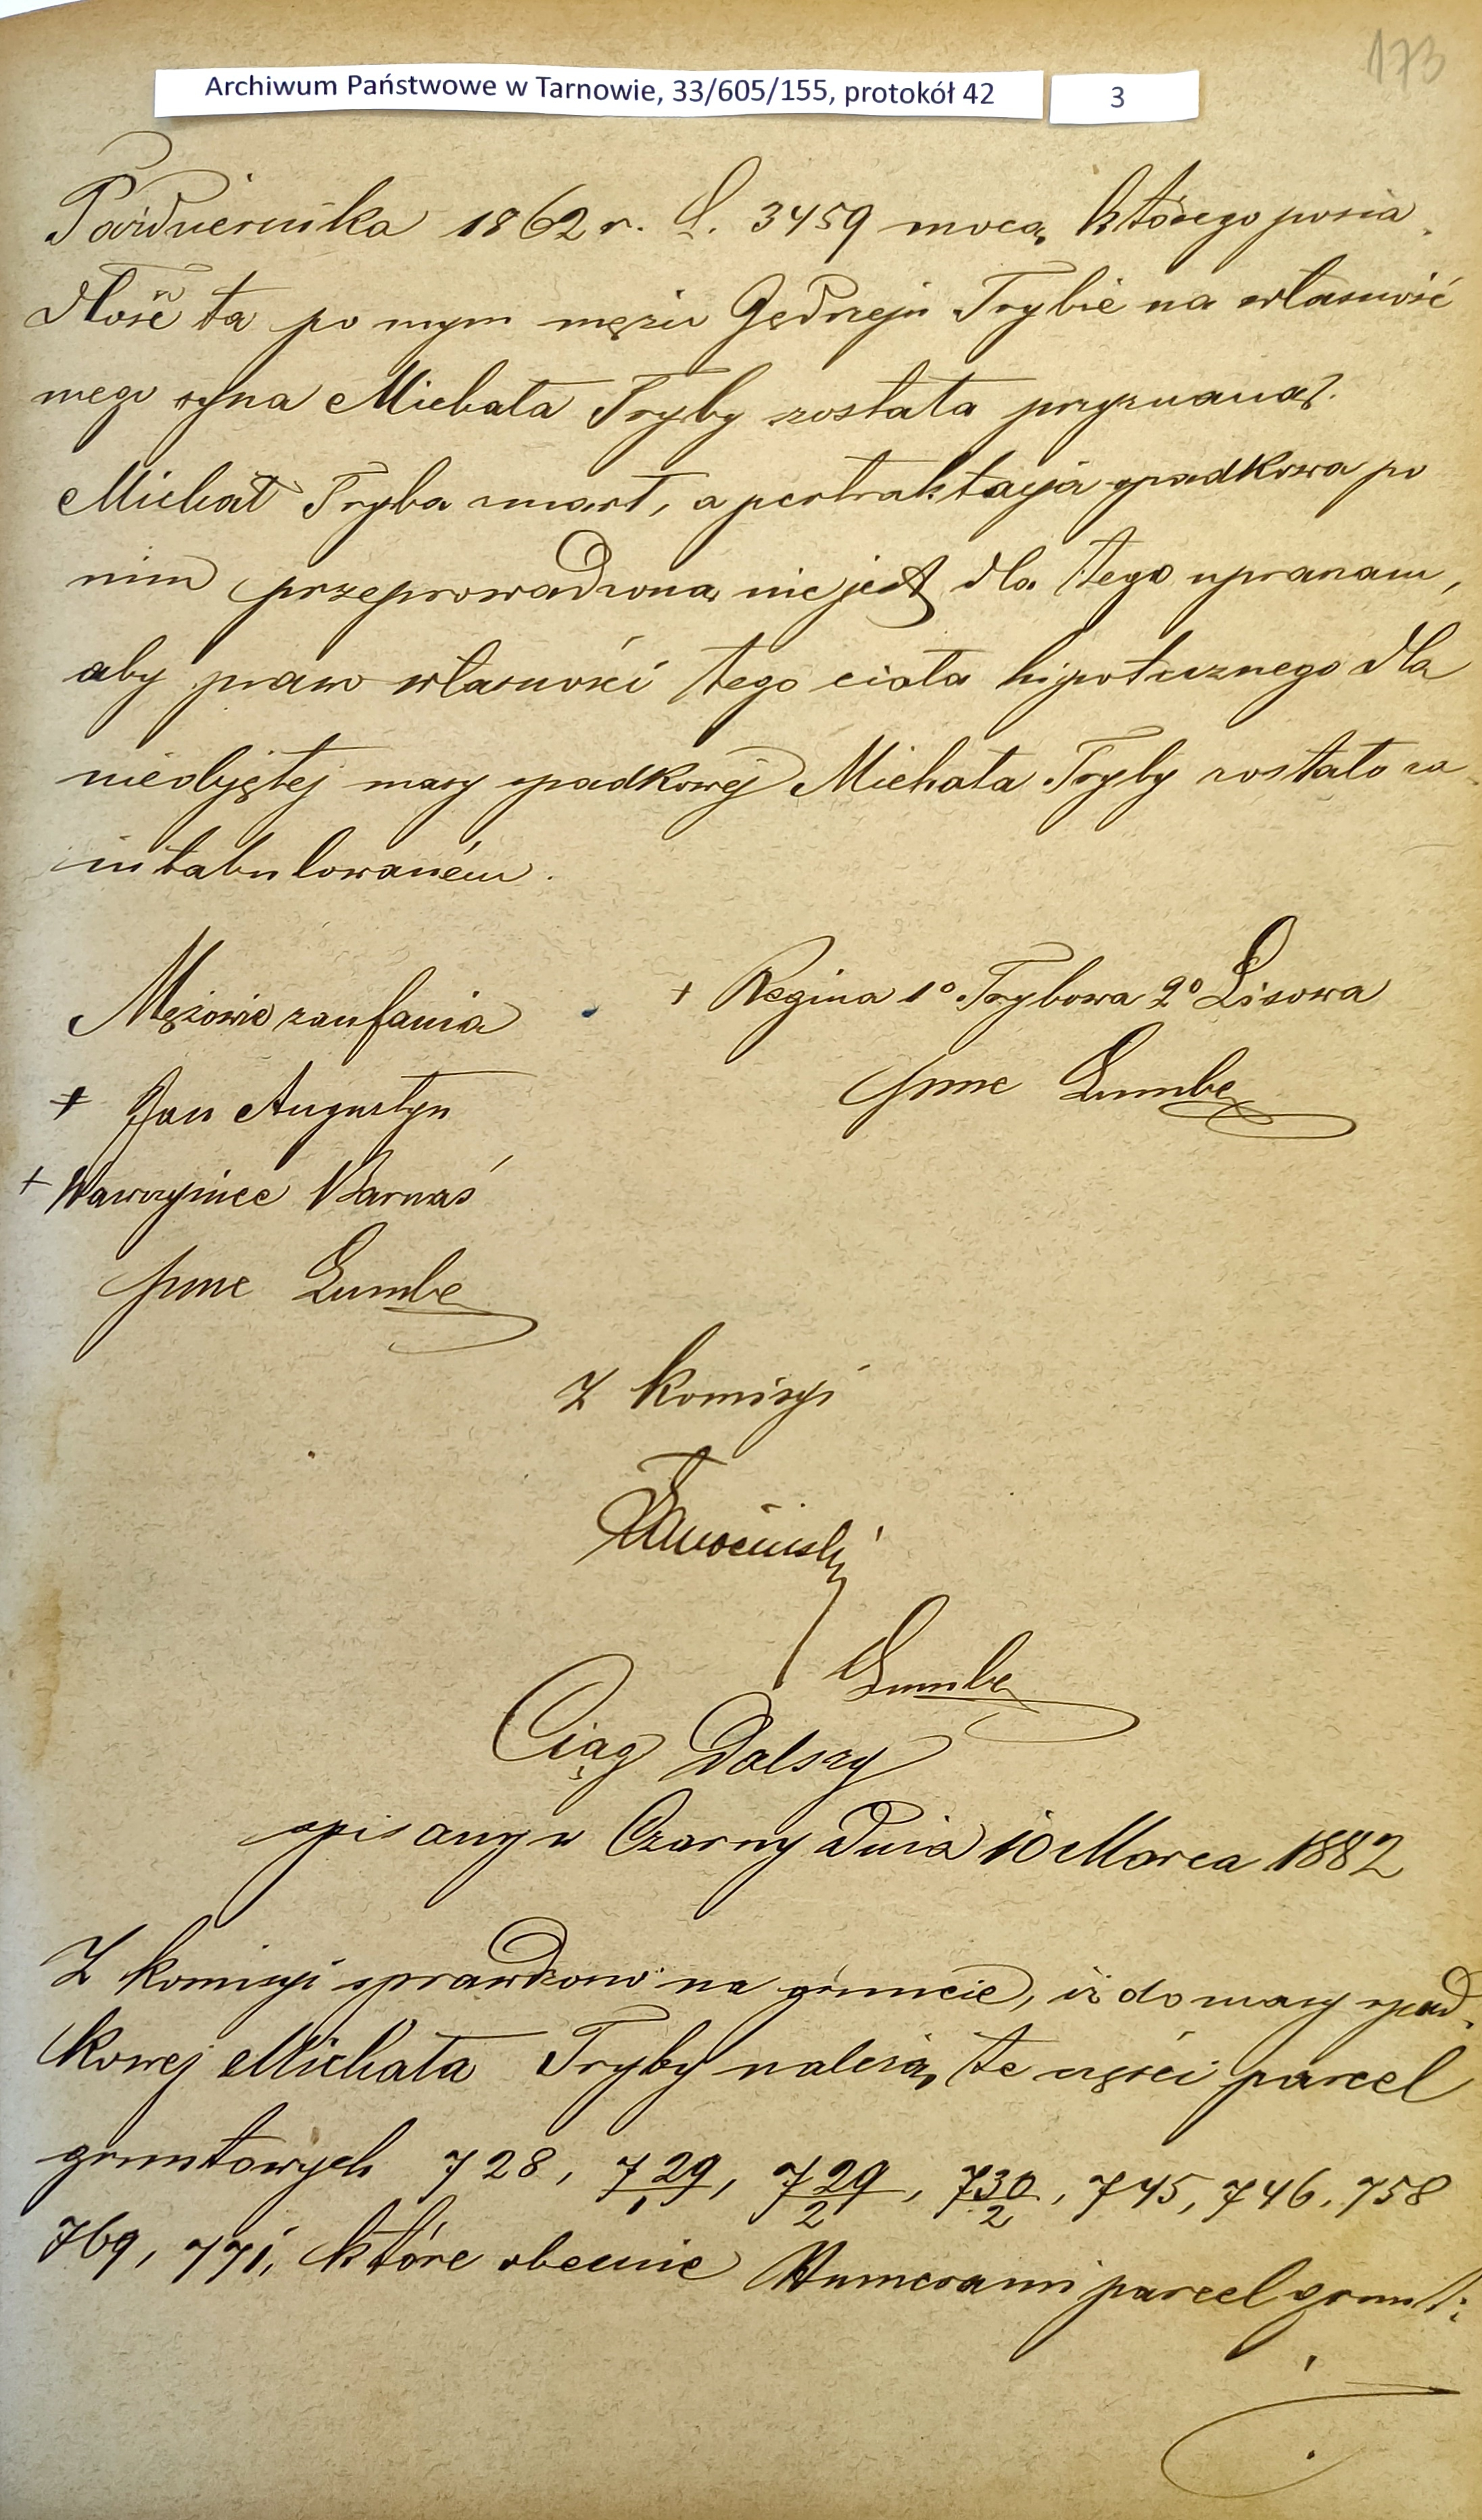 173
Archiwum Państwowe w Tarnowie, 33/605/155, protokół 42
3
Października 1862 r. L. 3459 mocą którego posia-
dłość ta po mym mężu Jędrzeju Trybie na własność
mego syna Michała Tryby została przyznaną.
Michał Tryba zmarł, a pertraktacyja spadkowa po
nim przeprowadzona nie jest dla tego upraszam,
aby prawo własności tego ciała hipotecznego dla
nieobjętej masy spadkowej Michała Tryby zostało za
intabulowaném.
Mężowie zaufania
+ Regina 1º Trybowa 2º Lisowa
+ Jan Augustyn
+ Wawrzyniec Barnaś
Z komisyi
Ciąg Dalszy
spisany w Czarny dnia 10 Marca 1882
Z komisyi sprawdzono na gruncie, iż do masy spad-
kowej Michała Tryby należą te części parcel
gruntowych 728, 729/1, 729/2, 730/2, 745, 746, 758
769, 771, które obecnie Numerami parcel grunt: